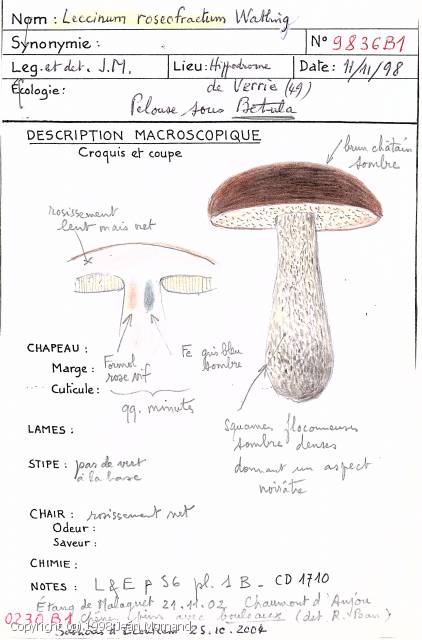 Nom : Leccinum roseofractum Watling
Synonymie : N° 9836B1
Leg. et det. J.M. Lieu : Hippodrome Date : 11/11/98
Écologie : de Verrie (49)
Pelouse sous Betula
DESCRIPTION MACROSCOPIQUE
Croquis et coupe
brun châtain
sombre
rosissement
lent mais net
CHAPEAU :
Marge : Formol
rose vif
Fe gris bleu
sombre
Cuticule :
qq. minutes
LAMES :
Squames floconneuses
sombres denses
donnant un aspect
noirâtre
STIPE : pas de vert
à la base
CHAIR : rosissement net
Odeur :
Saveur :
CHIMIE :
NOTES : L & E p 56 pl. 1 B - CD 1710
Étang de Malaguet 21.11.02 Chaumont d'Anjou
0230 B1 avec bouleaux (det R. )
25.10.2004